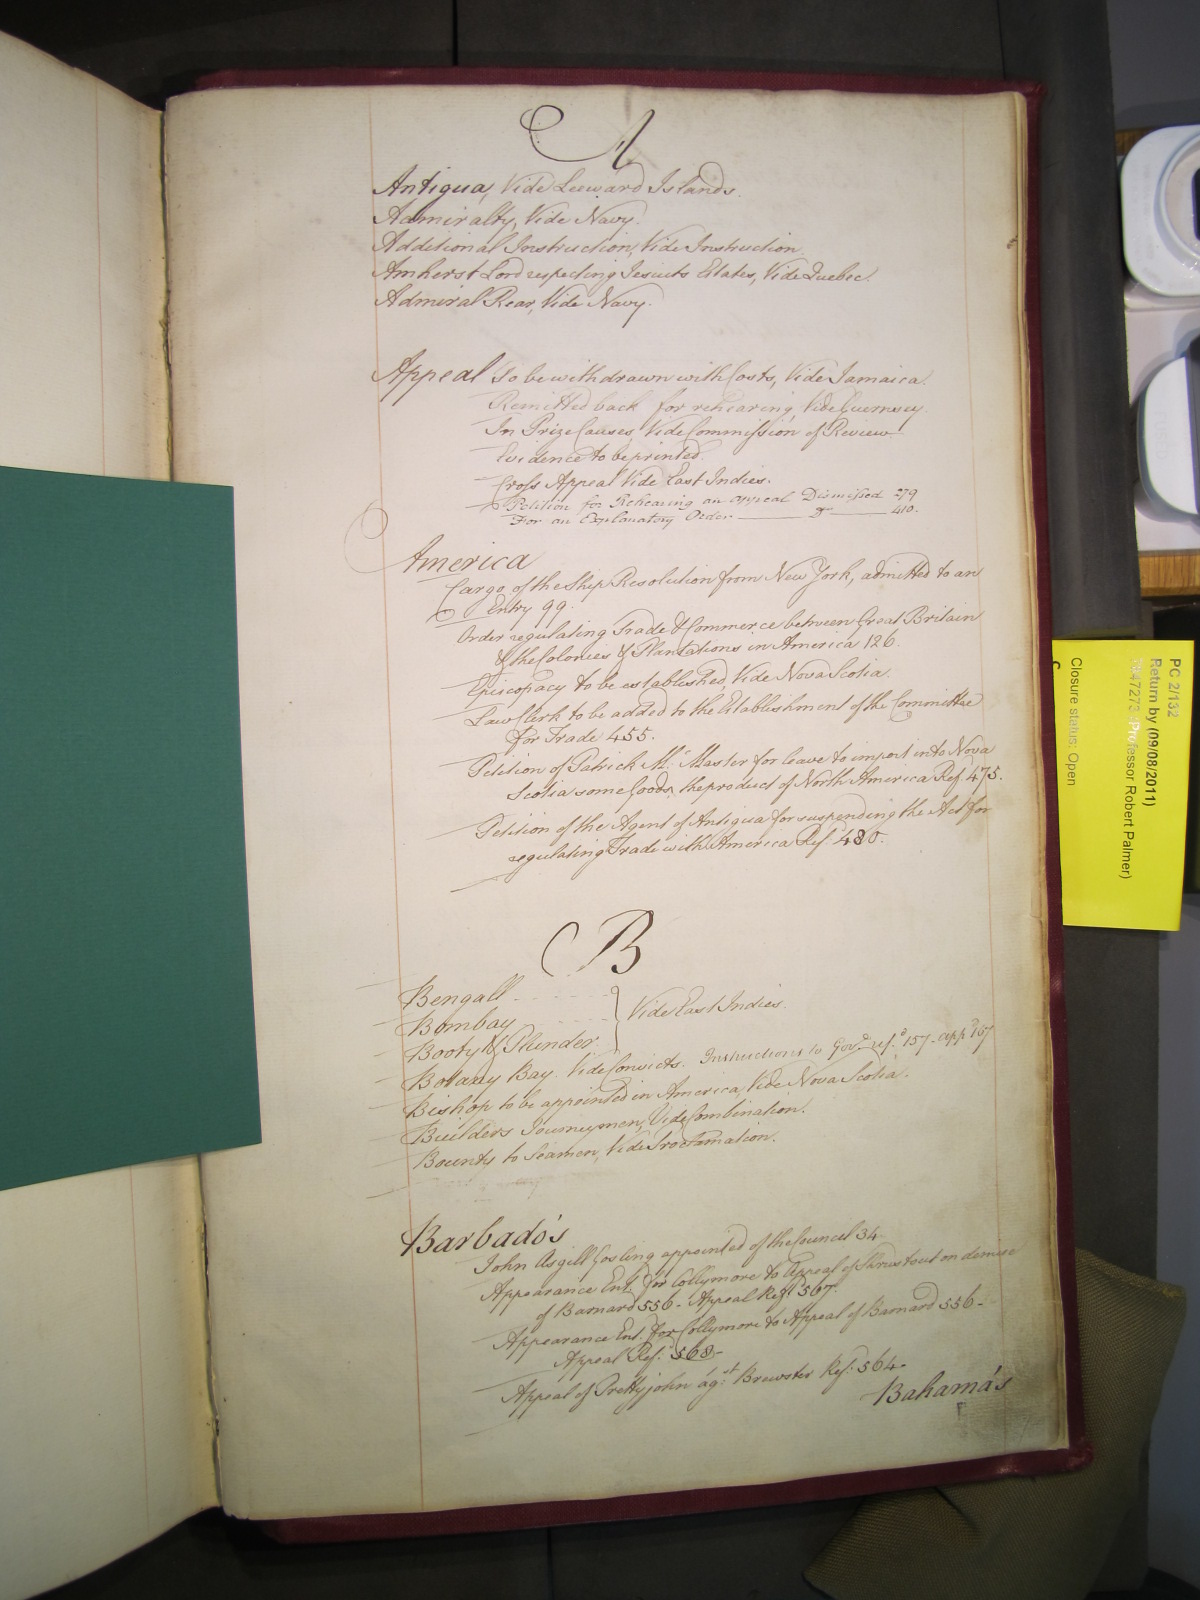 A
Antigua, Vide Leeward Islands.
Admiralty, Vide Navy.
Additional Instruction, Vide Instruction
Amherst Lord respecting Jesuits Estates, Vide Quebec.
Admiral Rear, Vide Navy.
Appeal To be withdrawn with Costs, Vide Jamaica.
Remitted back for rehearing, Vide Guernsey.
In Prize Causes, Vide Commission of Review
Evidence to be printed.
Cross Appeal Vide East Indies.
Petition for Rehearing an appeal Dismissed 279
For an Explanatory Order 410.
America
Cargo of the Ship Resolution from New York, admitted to an
Entry 99.
Order regulating Trade & Commerce between Great Britain
& the Colonies & Plantations in America 126.
Episcopacy to be established, Vide Nova Scotia.
Law Clerk to be added to the Establishment of the Committee
for Trade 455.
Petition of Patrick Mc. Master for leave to import into Nova
Scotia some Goods, the product of North America Ref. 475.
Petition of the Agent of Antigua for suspending the Act for
regulating Trade with America Ref. 480.
B
Bengall
Bombay } Vide East Indies.
Booty & Plunder
Botany Bay. Vide Convicts. Instructions to Govr. ref.d 157. appd 157
Bishop to be appointed in America, Vide Nova Scotia.
Builders Journeymen, Vide Combination.
Bounty to Seamen, Vide Proclamation.
Barbado's
John Asgill Gosling appointed of the Council 34
Appearance Ent. for Collymore to Appeal of on demise
of Barnard 556 - Appeal Ref. 567.
Appearance Ent. for Collymore to Appeal of Barnard 556 -
Appeal Ref. 568 -
Appeal of Prettyjohn agst. Brewster Ref. 564 -
Bahama's
PC 2/132
Return by (09/08/2011)
Professor Robert Palmer)
Closure status: Open